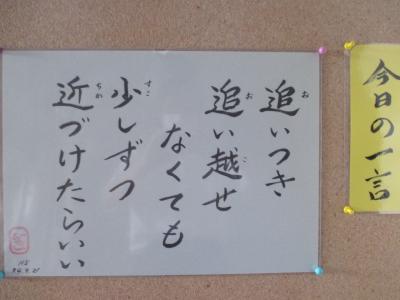 今日の一言
追いつき
追い越せ
なくても
少しずつ
近づけたらいい